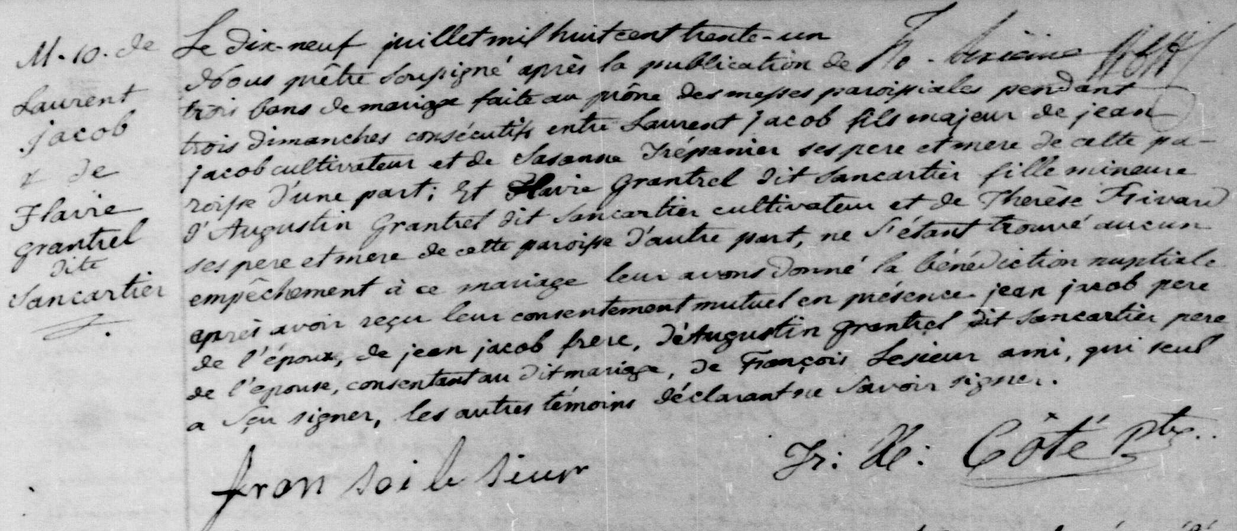 M. 10. de
Laurent
Jacob
& de
Flavie
grantrel
dite
Sancartier
Le dix-neuf juillet mil huit cent trente-un
Nous prêtre soussigné après la publication de
trois bans de mariage faite au prône des messes paroissiales pendant
trois dimanches consécutifs entre Laurent Jacob fils majeur de jean
Jacob cultivateur et de Susanne Trépanier ses pere et mere de cette pa-
roisse d'une part; Et Flavie Grantrel dit Sancartier fille mineure
d'Augustin Grantrel dit Sancartier cultivateur et de Thérèse Frivard
ses pere et mere de cette paroisse d'autre part, ne s'étant trouvé aucun
empêchement à ce mariage leur avons donné la bénédiction nuptiale
après avoir reçu leur consentement mutuel en présence jean jacob pere
de l'époux, de jean jacob frere, d'Augustin grantrel dit Sancartier pere
de l'epouse, consentant au dit mariage, de François Lesieur ami, qui seul
a sçu signer, les autres témoins déclarant ne savoir signer.
fran soi le sieur
Côté Ptre.